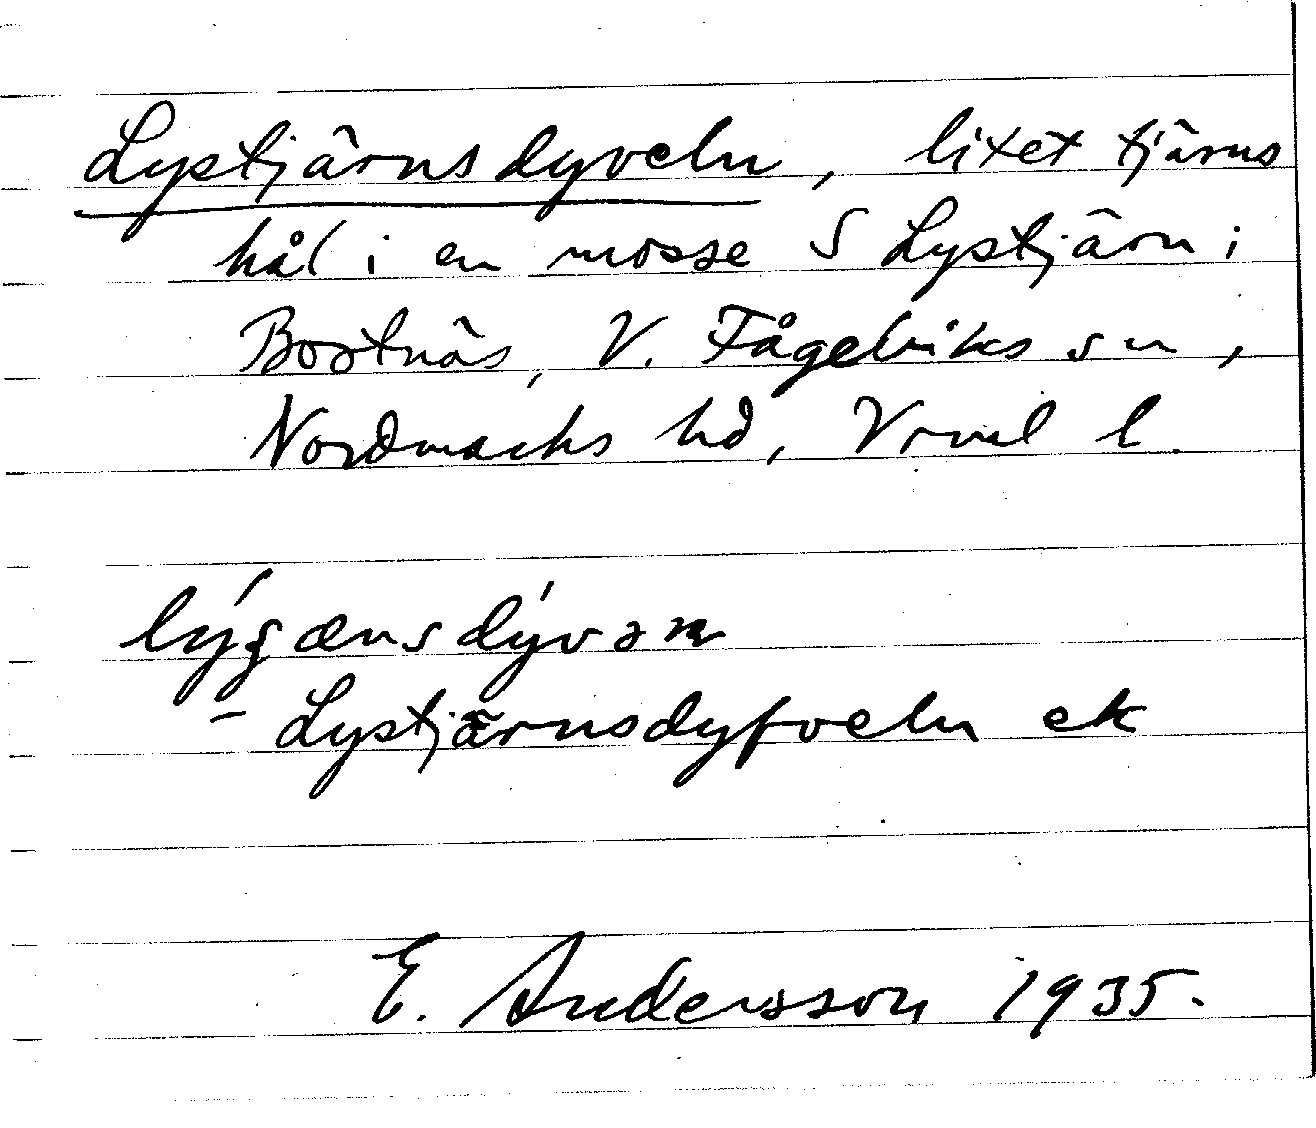 Lystjärnsdyveln, litet tjärns
hål i en mosse S Lystjärn i
Bortnäs, V. Fågelviks sn,
Nordmarks hd, Vrml l.
lýʂænsdývəɴ
- Lystjärnsdyfveln ek
E. Andersson 1935.